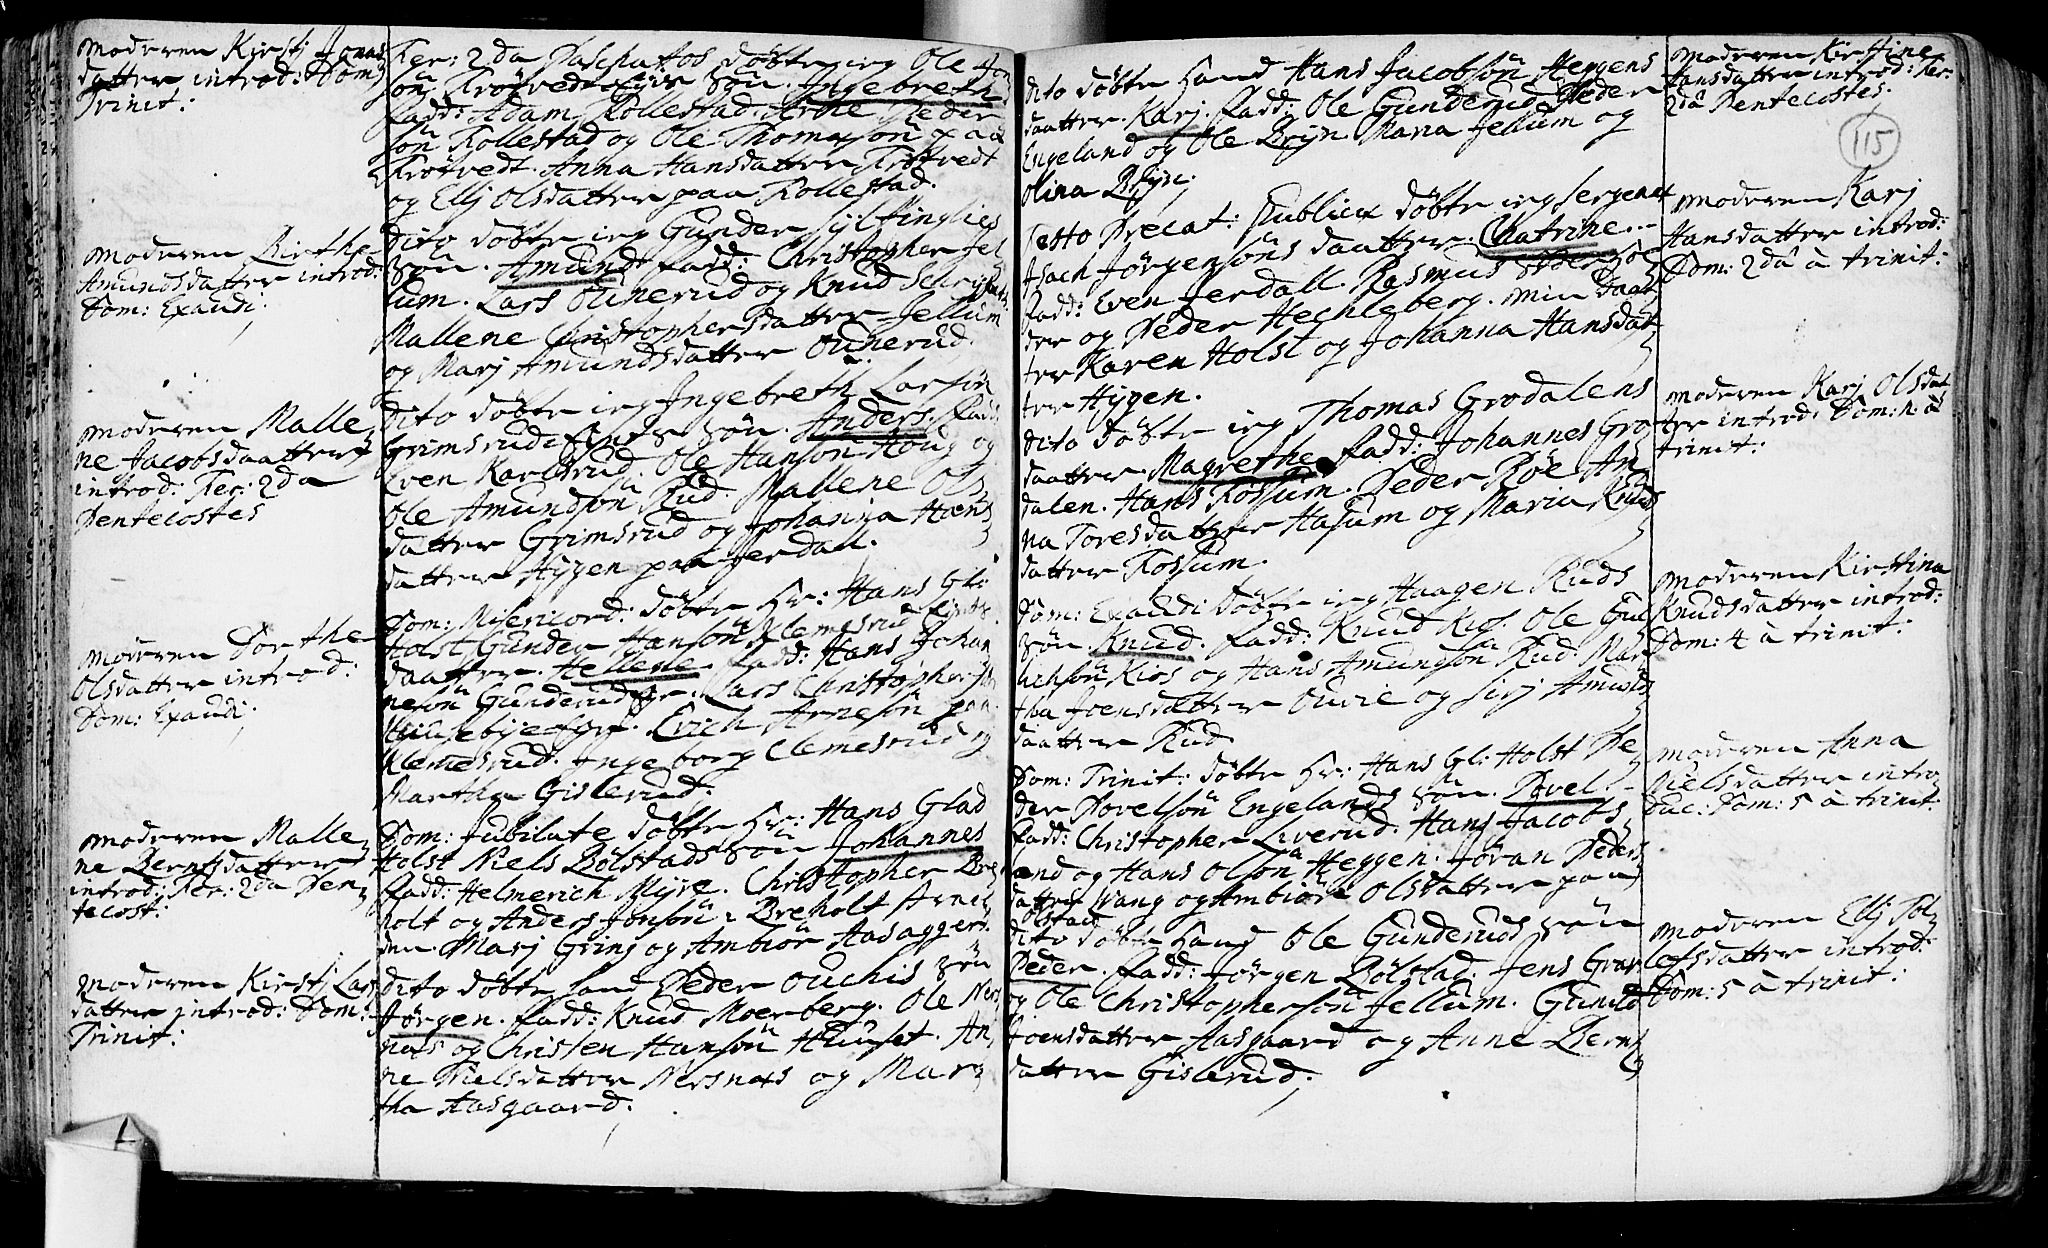 Moderen Kirstj Jonas
datter introd: Dom:
Trinit:
Moderen Birthe
Amundsdatter introd:
Dom: Exaudi.
Moderen Malle
ne Jacobsdaatter
introd: Fer: 2da
Pentecostes
Moderen Dorthe
Olsdatter introd:
Dom: Exaudi.
Moderen Malle
ne Berntsdatter
introd: Fer: 2da Pen
tecost:
Moderen Kirstj Lars
datter introd: Dom:
Trinit:
Fer: 2da Paschatos døbte ieg Ole
søn Krøtvedt Eyer søn. Ingebreth
fadd: Adam Kollestad. Arne Peder
søn Kollestad og Ole Thomesøn paa
Krøtvedt. Anna Hansdatter Krøtvedt
og Ellj Olsdatter paa Kollestad.
Dito døbte ieg Gunder Syltinglies
søn. Amund fadd: Christopher Jel
lum. Lars Ounerud og Knud
Mallene Christophersdatter Jellum
og Marj Amundsdatter Ounerud.
Dito døbte ieg Ingebreth Larsøn
Grimsrud søn. Anders. fadd:
Even Karlsrud. Ole Hansøn Houg og
Ole Amundsøn Rud. Mallene Ols
datter Grimsrud og Johanna Hans
datter Hygen paa Jerdall.
Dom: Misericord: døbte Hr: Hans Gl:
Holst Gunder Hansøn Klemesrud
daatter. Hellene. fadd: Hans Johan
nesøn Gunderud Eyer. Lars Christophersøn
Huuseby Eyer. Erich Arnesøn paa
Klemesrud. Ingeborg Clemesrud og
Martha Gislerud.
Dom: Jubilate døbte Hr: Hans Glad
Holst Niels Bølstads søn Johannes
fadd: Helmerich Myre. Christopher Bre
holt og Anders Jonsøn Breholt
den Marj Gring og Ambiør Aasaggers.
Dito døbte hand Peder Ouchis søn
Jørgen. fadd: Knud Moerberg. Ole Ners
næs og Christen Hansøn Huuset. An
ne Nielsdatter Nersnæs og Mar
tha Aasgaard.
Dito døbte hand Hans Jacobsøn Heggens
daatter Karj. fadd: Ole Gunderud Peder
Engeland og Ole Bryn. Maria Jellum og
Olina Bryn.
Festo Precat: Publicæ døbte ieg Sergeant
Isach Jørgensøns daatter. Chatrine.
fadd: Even Jerdall. Rasmus
der og Peder Hechleberg. Min daat
ter Karen Holst og Johanna Hansdat
ter Hygen.
Dito døbte ieg Thomas Grodalens
daatter. Magrethe. fadd: Johannes Gro
dalen. Hans Fossum. Peder Röe. An
na Toresdatter Hasum og Maria Knuds
datter Fossum.
Dom: Exaudi døbte ieg Haagen Ruds
søn. Knud. fadd: Knud Kios. Ole Gul
lichsøn Kios og Hans Amundsøn Rud. Mar
tha Joensdatter Ourie og Sirj Amunds
daatter Rud.
Dom: Trinit: døbte Hr: Hans Gl: Holst Pe
der Povelsøn Engelands søn. Povel.
fadd: Christopher Liverud. Hans Jacobs
and og Hans Olsøn Heggen. Jøran Peders
datter Wang og Ambiør Olsdatter paa
Bølstad.
Dito døbte hand Ole Gunderuds søn
Peder. fadd: Jørgen Bølstad. Jens Grav
og Ole Christophersøn Jellum. Gunild
Joensdatter Aasgaard og Anne Bernts
datter Gislerud.
Moderen Kirstine
Hansdatter introd: Fer:
2da Pentecostes.
115
Moderen Karj
Hansdatter introd:
Dom: 2da à trinit:
Moderen Karj Olsdat
ter introd: Dom: n. à
trinit:
Moderen Kirstina
Knudsdatter introd:
Dom: 4 à trinit:
Moderen Anna
Nielsdatter intro
duc: Dom: 5 à trinit:
Moderen Ellj Tol
lefsdatter introd:
Dom: 5 à trinit: